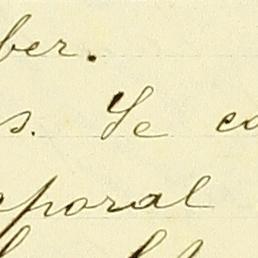 ber.
s. Se co
aporal